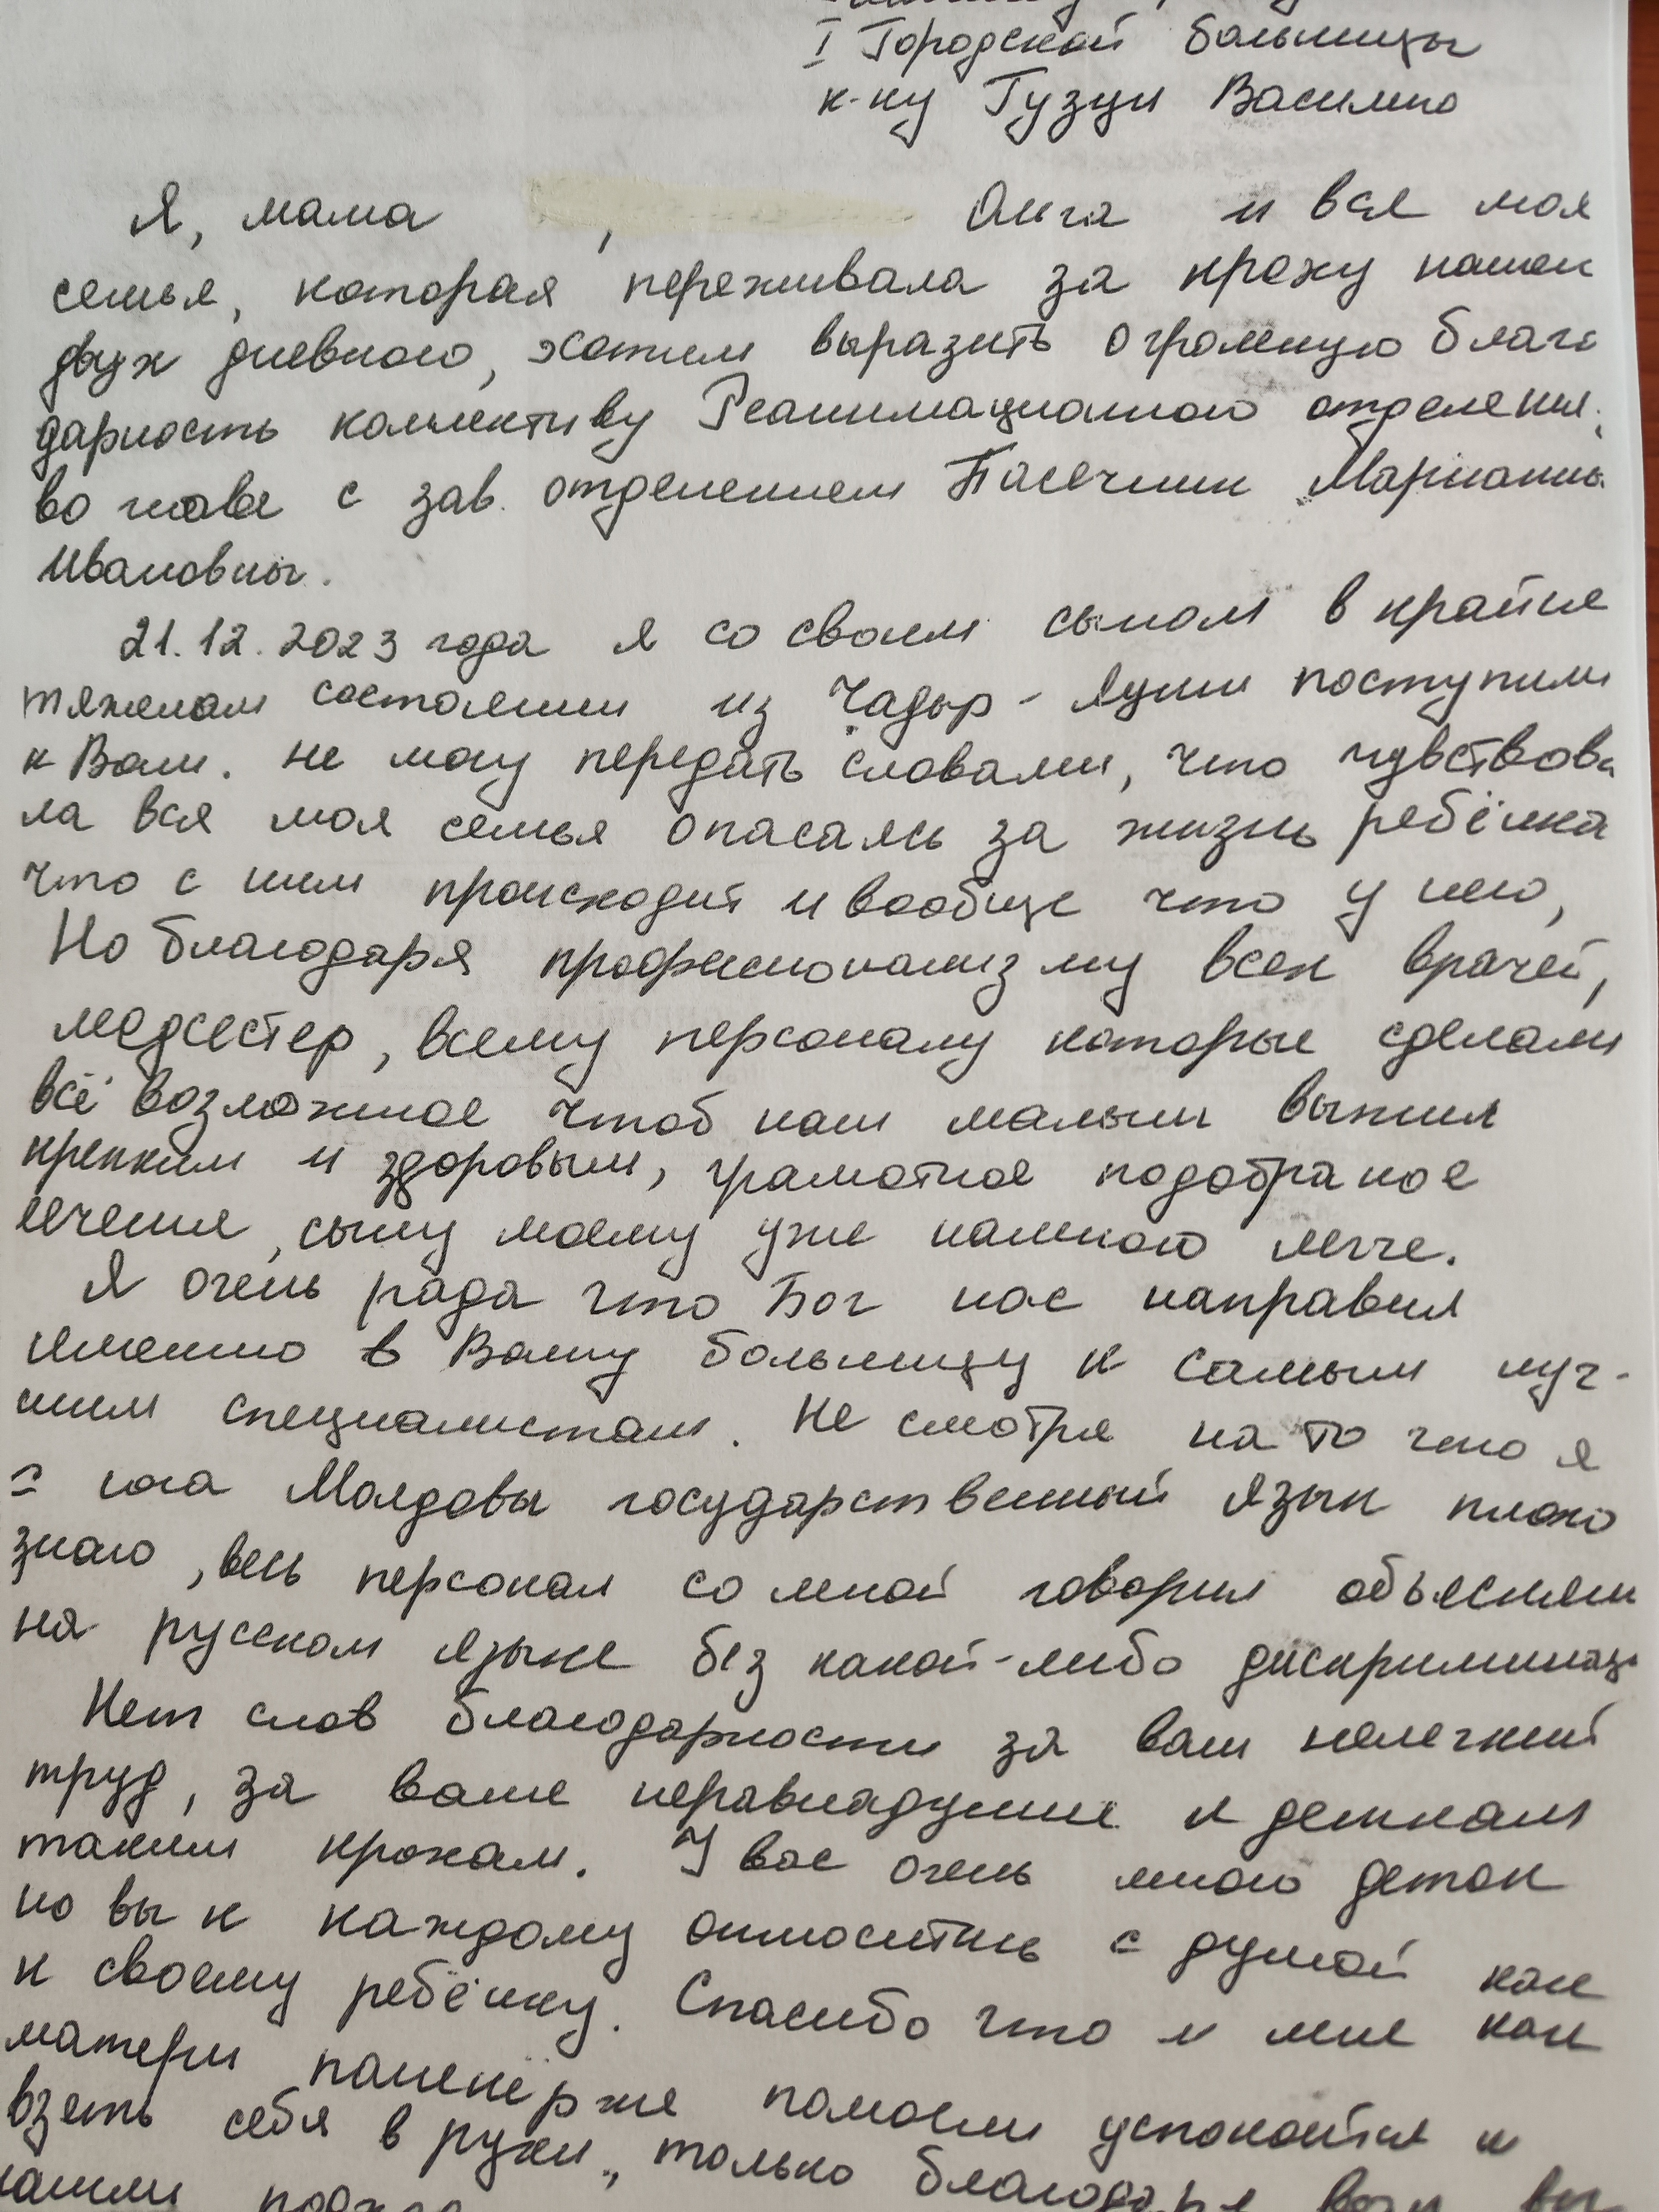 I Городской больницы
к-ну Гузун Василию
Я, мама , Анга и вся моя
семья, которая переживала за кроху нашей
двух дневного, хотим выразить огромную благо
дарность коллективу Реанимационного отделения,
во главе с зав. отделением Пасечник Марианны
Ивановны.
21.12.2023 года я со своим сыном в крайне
тяжелом состоянии из Чадыр-Лунги поступили
к Вам. Не могу передать словами, что чувствова
ла вся моя семья опасаясь за жизнь ребёнка
что с ним происходит и вообще что у него,
Но благодаря профисионализму всех врачей,
медсестер, всему персоналу которые сделали
всё возможное чтоб наш малыш выжил
крепким и здоровым, грамотное подобраное
лечение, сыну моему уже намного легче.
Я очень рада что Бог нас направил
именно в Вашу больницу к самым луч-
шим специалистам. Не смотря на то что я
с юга Молдовы государственный язык плохо
знаю, весь персонал со мной говорил объясняли
на русском языке без какой-либо дискриминаци
Нет слов благодарности за ваш нелегкий
труд, за ваше неравнадушие к деткам
таким крохам. У вас очень много деток
но вы к каждому относитесь с душой как
к своему ребёнку. Спасибо что и мне как
матери пошенёрже помогли успокоится и
взять себя в руки, только благодаря вам вы
нашли